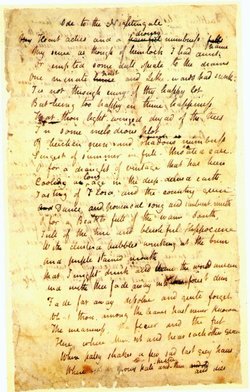 Ode to the Nightingale
My Heart aches and a drowsy numbness
My sense as though of hemlock I had drunk
Or emptied some dull opiate to the drains
One minute past and Lethe wards had sunk
Tis not through envy of thy happy lot
But being too happy in thine happiness
That thou light winged dryad of the trees
In some melodious plot
Of beechen green and shadows numberless
Singest of summer in full throated ease
O for a draught of vintage that has been
Cooling an age in the deep delved earth
Tasting of Flora and the country green
Dance and provencal song and sunburnt mirth
O for a Beaker full of the warm South
Full of the true and blushful Hippocrene
With cluster'd bubbles winking at the brim
And purple stained mouth
That I might drink and leave the world unseen
And with thee fade away into forest dim
Fade far away dissolve and quite forget
What thou among the leaves hast never known
The weariness the fever and the fret
Here where men sit and hear each other groan
Where palsy shakes a few sad last grey hairs
Where youth grows pale and thin and dies